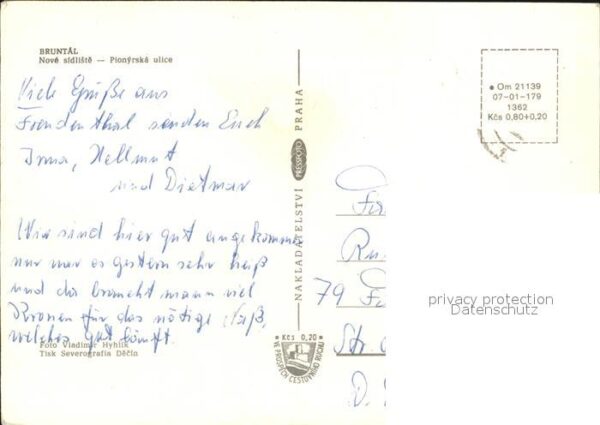 BRUNTÁL
Nové sídliště — Pionýrská ulice
Viele Grüße aus
Freudenthal senden Euch
Irma, Hellmut
und Dietmar
Wir sind hier gut angekommen
nur war es gestern sehr heiß
und da braucht mann viel
Kronen für das nötige Naß,
welches gut
Foto Vladimír Hyhlík
Tisk Severografia Děčín
NAKLADATELSTVÍ PRESSFOTO PRAHA
* Kčs 0,20 *
VE PROSPĚCH CESTOVNÍHO RUCHU
• Om 21139
07-01-179
1362
Kčs 0,80+0,20
79
Str.
D.
privacy protection
Datenschutz